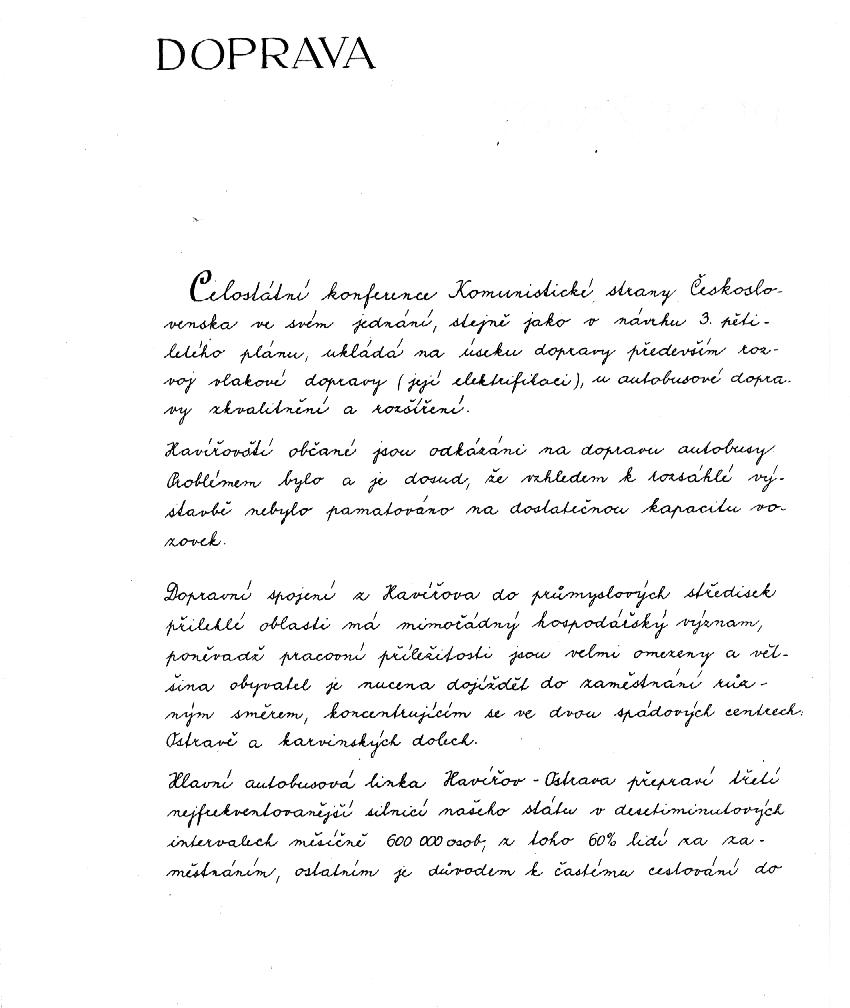 DOPRAVA
Celostátní konference Komunistické strany Českoslo-
venska ve svém jednání, stejně jako v návrhu 3. pěti-
letého plánu, ukládá na úseku dopravy především roz-
voj vlakové dopravy (její elektrifilaci), u autobusové dopra.
vy zkvalitnění a rozšíření.
Havířovští občané jsou odkázáni na dopravu autobusy
Problémem bylo a je dosud, že vzhledem k rozsáhlé vý-
stavbě nebylo pamatováno na dostatečnou kapacitu vo-
zovek.
Dopravní spojení z Havířova do průmyslových středisek
přilehlé oblasti má mimořádný hospodářský význam,
poněvadž pracovní příležitosti jsou velmi omezeny a vět-
šina obyvatel je nucena dojíždět do zaměstnání růz-
ným směrem, koncentrujícím se ve dvou spádových centrech:
Ostravě a karvinských dolech.
Hlavní autobusová linka Havířov - Ostrava přepraví třetí
nejfrekventovanější silnicí našeho státu v desetiminutových
intervalech měsíčně 600 000 osob, z toho 60% lidí za za-
městnáním, ostatním je důvodem k častému cestování do